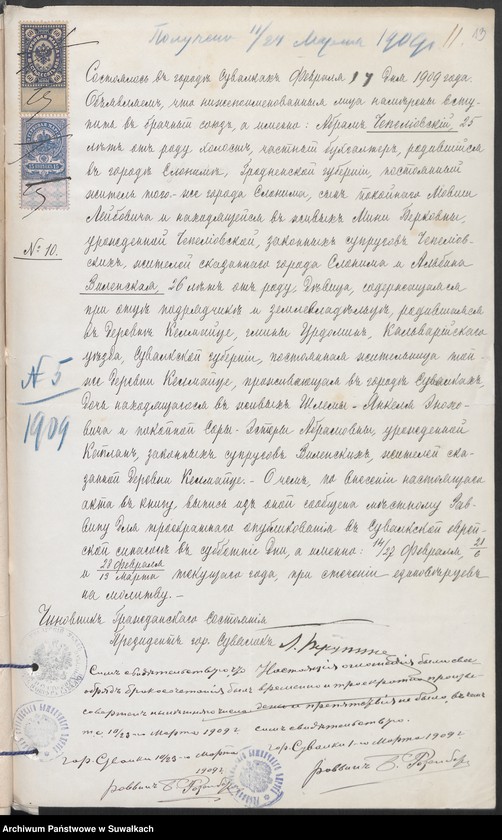 Получено 11/24 Марта 1909 г. 11. 13
Состоялось въ городѣ Сувалкахъ Февраля 17 дня 1909 года.
Объявляемъ, что нижепоименованныя лица намѣрены всту-
пить въ брачный союзъ, а именно: Абрамъ Чепелiовскiй, 25
лѣтъ отъ роду, холостъ, частный бухгалтеръ, родившiйся
въ городѣ Слонимѣ, Гродненской губернiи, постоянный
житель того-же города Слонима, сынъ покойнаго Мовши
Лейбовича и находящейся въ живыхъ Мини Берковны,
урожденной Чепелiовской, законныхъ супруговъ Чепелiов-
скихъ, жителей сказаннаго города Слонима и Альбина
№ 10.
Виленская, 26 лѣтъ отъ роду, дѣвица, содержащаяся
при отцѣ подрядчикѣ и землевладѣльцѣ, родившаяся
въ деревнѣ Келмайце, гмины Урдоминъ, Кальварiйскаго
уѣзда, Сувалкской губернiи, постоянная жительница той-
же деревни Келмайце, проживающая въ городѣ Сувалкахъ,
№ 5
1909
дочь находящагося въ живыхъ Шлемы-Янкеля
вича и покойной Соры-Эстеры Абрамовны, урожденной
Кепланъ, законныхъ супруговъ Виленскихъ, жителей ска-
занной деревни Келмайце. - О чемъ, по внесенiи настоящаго
акта въ книгу, выпись изъ оной сообщена мѣстному Рав-
вину для троекратнаго опубликованiя въ Сувалкской еврей-
ской синагогѣ въ субботнiе дни, а именно: 14/27 Февраля, 21/6
и 28 Февраля/13 Марта текущаго года, при стеченiи единовѣрцевъ
на молитву. -
Чиновникъ Гражданскаго Состоянiя
Президентъ гор. Сувалокъ
Симъ свидѣтельствую, что
обрядъ бракосочетанiя былъ
совершенъ
10/23-го Марта 1909 г.
гор. Сувалки 10/23-го Марта
1909 г.
Раввинъ
Настоящiя оглашенiя были свое-
временно и троекратно произве-
дены и препятствiя не было, въ чемъ
симъ свидѣтельствую.
гор. Сувалки 1-го Марта 1909 г.
Раввинъ
Archiwum Państwowe w Suwałkach